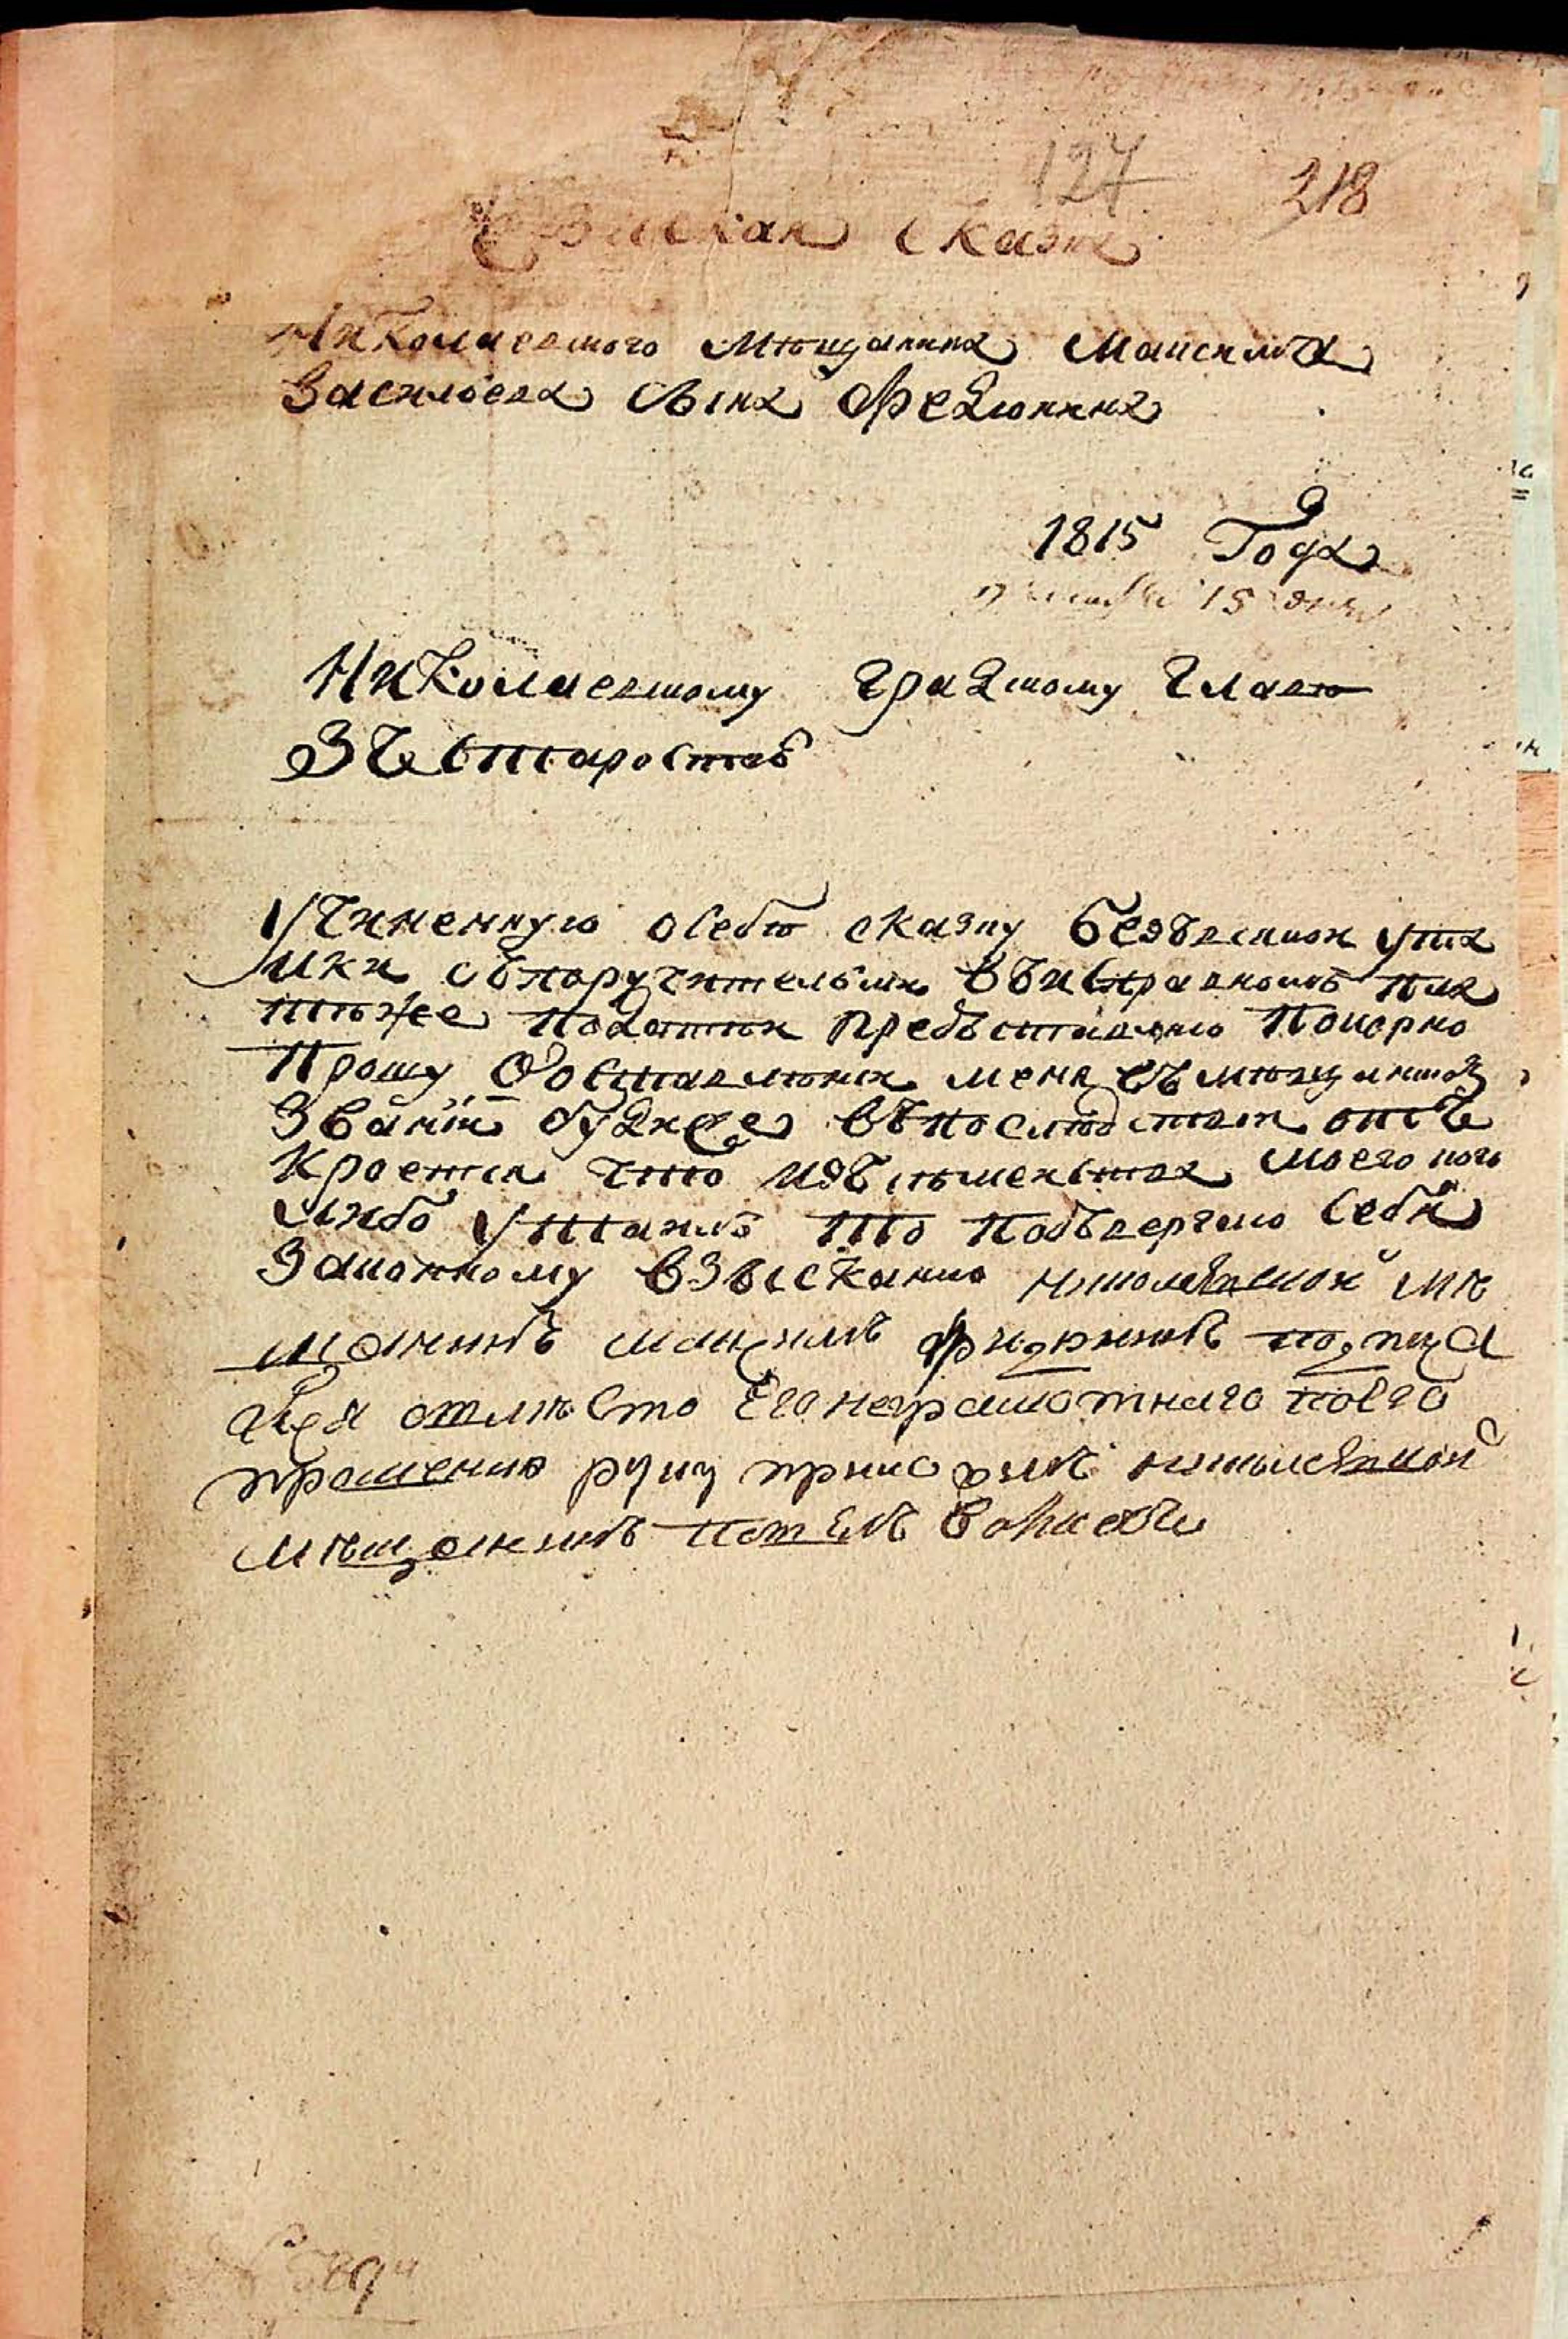 127 218
Ревизская сказка
Николаевского мѣщанина Максима
Васильева сына Федюнина
1815 Года
15 дня
Николаевскому градскому главѣ
Зъ Старостаъ
Учиненную осебѣ сказку безъвсякои ута
ики съпоручительми въисправномъ пла
тѣже податеи предъставляю покорно
Прошу Обоставлении меня въмѣщанскомъ
Званіи будеже въпослѣдствии отъ
кроется что изъсѣменства моего кого
либо Утаилъ то подъвергаю себя
Законному взысканию николаевскои мѣ
щанинъ максимъ федюнинъ
авмѣсто Его неграмотнаго поего
прошению руку приложилъ николаевскои
мѣщанинъ